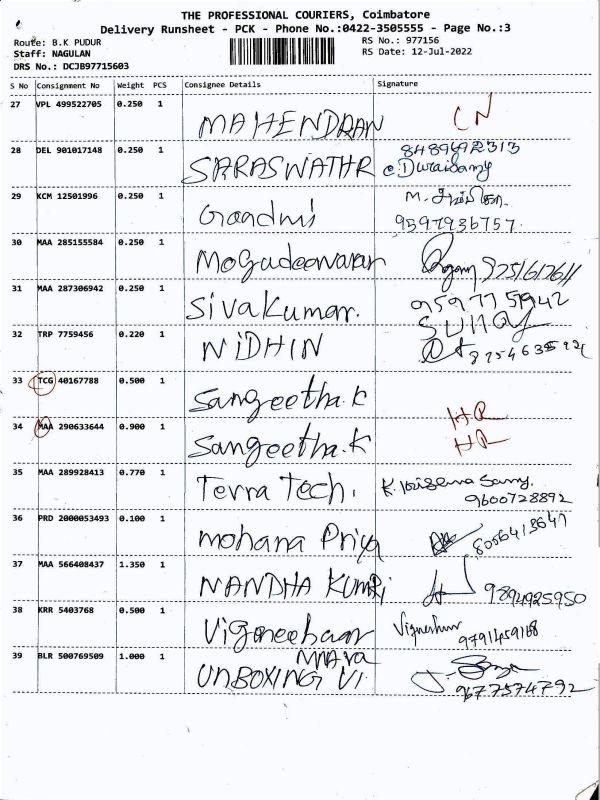 THE PROFESSIONAL COURIERS, Coimbatore
Delivery Runsheet - PCK - Phone No.:0422-3505555 - Page No.:3
Route: B.K PUDUR
RS No.: 977156
Staff: NAGULAN
RS Date: 12-Jul-2022
DRS No.: DCJB97715603
S No Consignment No Weight PCS Consignee Details Signature
27 VPL 499522705 0.250 1 MAHENDRAN CN
28 DEL 901017148 0.250 1 SARASWATHR
29 KCM 12501996 0.250 1 M.
9597936757.
30 MAA 285155584 0.250 1
31 MAA 287306942 0.250 1 Sivakumar. 9597715942
32 TRP 7759456 0.220 1 NIDHIN
33 TCG 40167788 0.500 1 Sangeetha.K HR
34 MAA 290633644 0.900 1 Sangeetha.K HR
35 MAA 289928413 0.770 1 Terra Tech.
9600728892
36 PRD 2000053493 0.100 1 mohana Priya 8056413647
37 MAA 566408437 1.350 1 NANDHA KUMAR 9894925950
38 KRR 5403768 0.500 1 Vigneshwar
9791459168
39 BLR 500769509 1.000 1 UNBOXING VI
9677574792